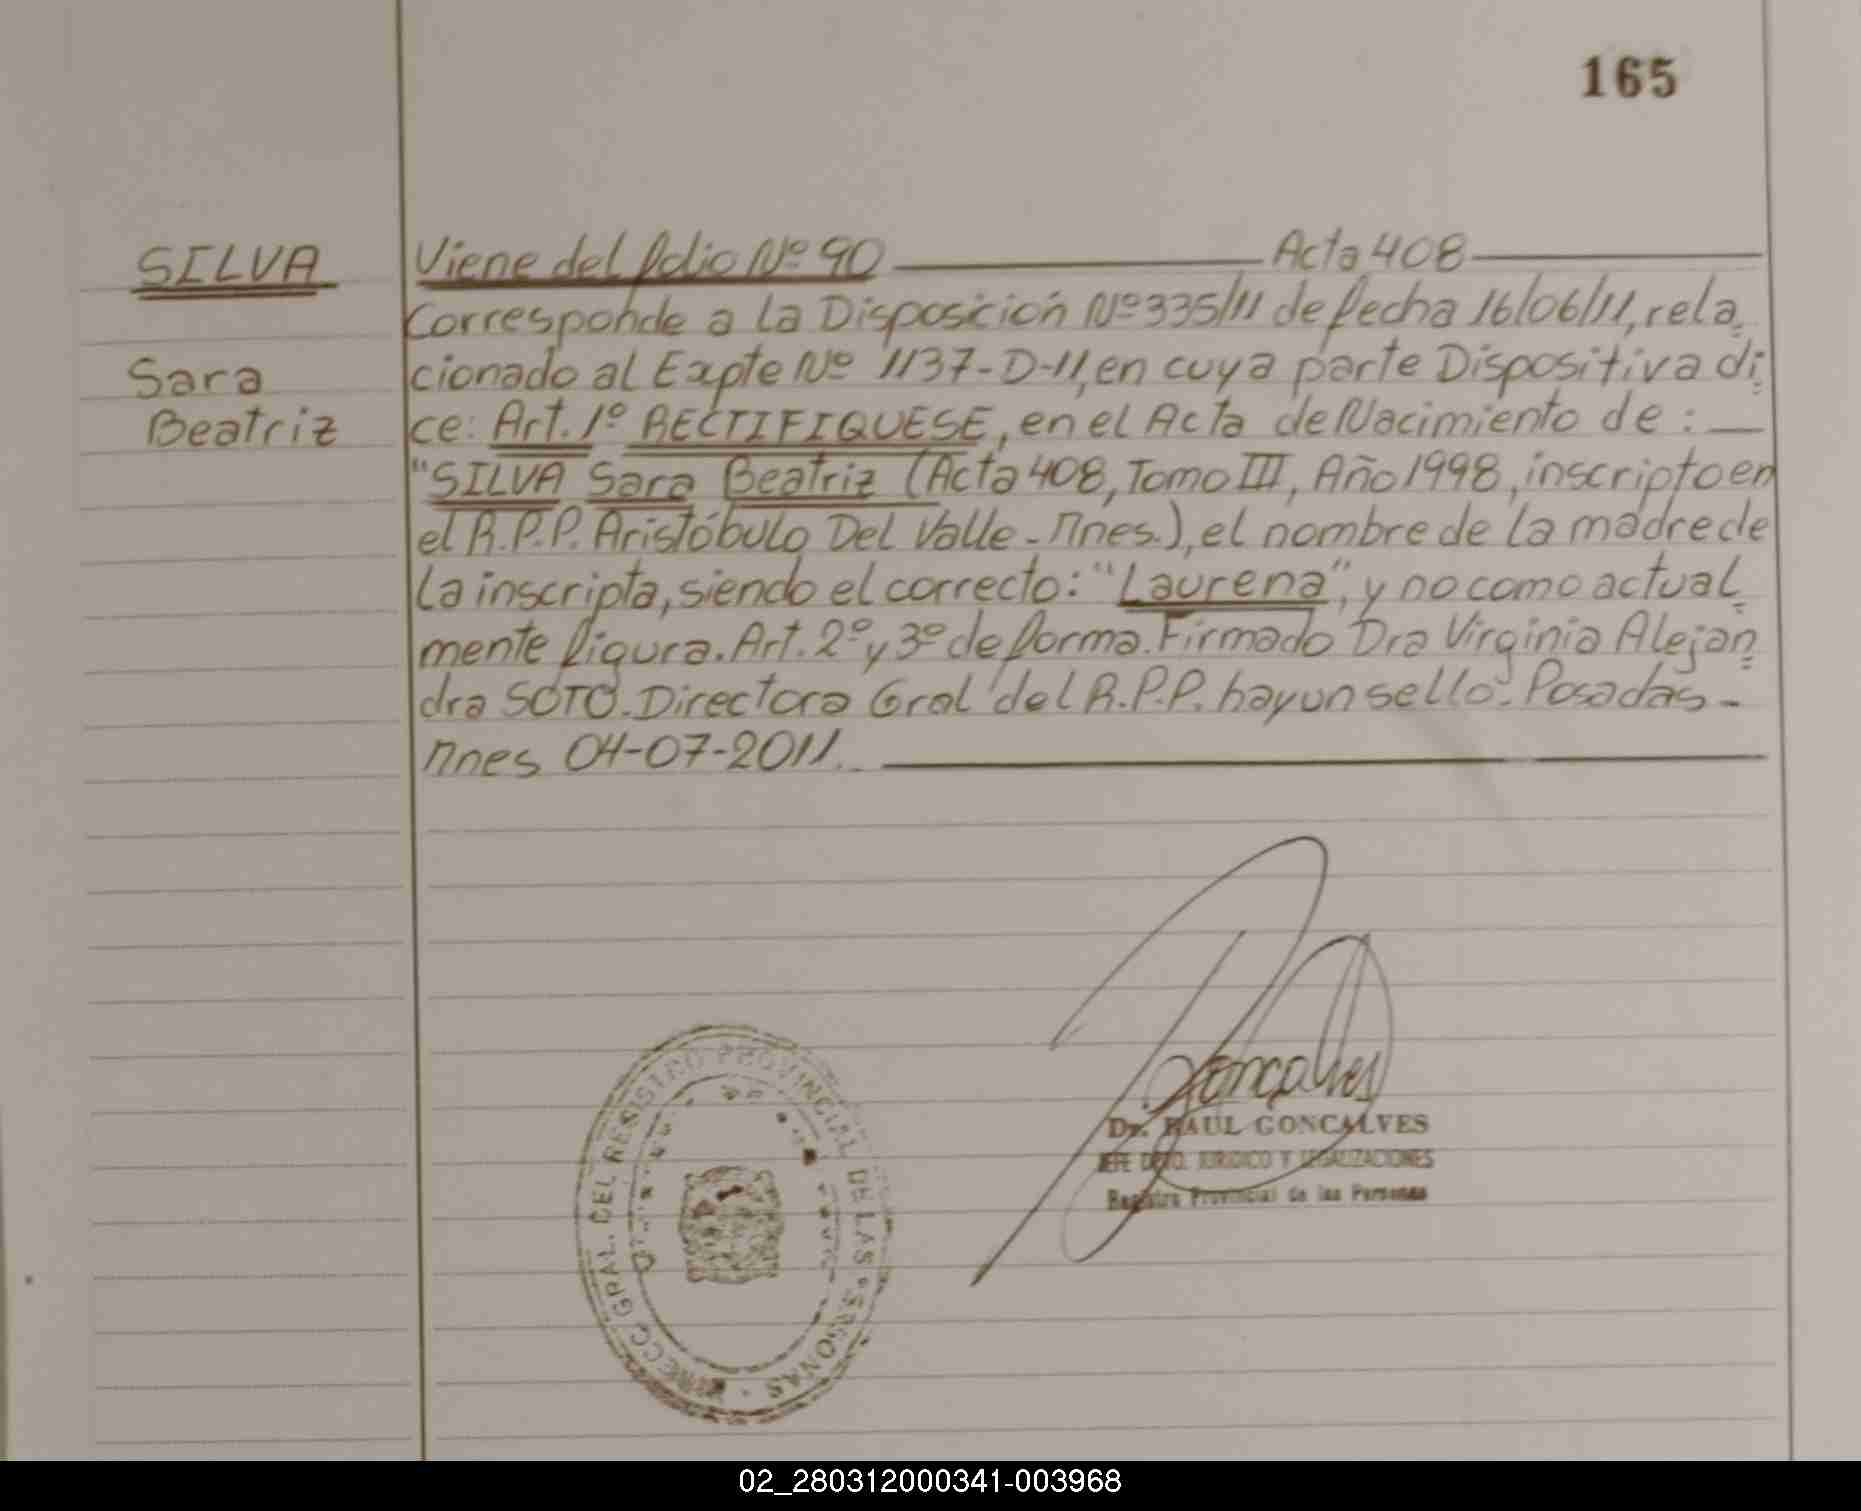 165
SILVA
Viene del folio Nº 90 ———— Acta 408 ————
Corresponde a la Disposición Nº 335/11 de fecha 16/06/11, rela=
Sara
cionado al Expte Nº 1137-D-11, en cuya parte Dispositiva di=
Beatriz
ce: Art. 1º RECTIFIQUESE, en el Acta de Nacimiento de: —
"SILVA Sara Beatriz (Acta 408, Tomo III, Año 1998, inscripto en
el R.P.P. Aristóbulo Del Valle - Mnes.), el nombre de la madre de
la inscripta, siendo el correcto: "Laurena", y no como actual=
mente figura. Art. 2º y 3º de forma. Firmado Dra Virginia Alejan=
dra SOTO. Directora Gral del R.P.P. hay un sello. Posadas -
Mnes 04-07-2011. ————
Goncalves
Dr. RAUL GONCALVES
JEFE DPTO. JURIDICO Y LEGALIZACIONES
Registro Provincial de las Personas
DIRECC GRAL. DEL REGISTRO PROVINCIAL DE LAS PERSONAS
02_280312000341-003968